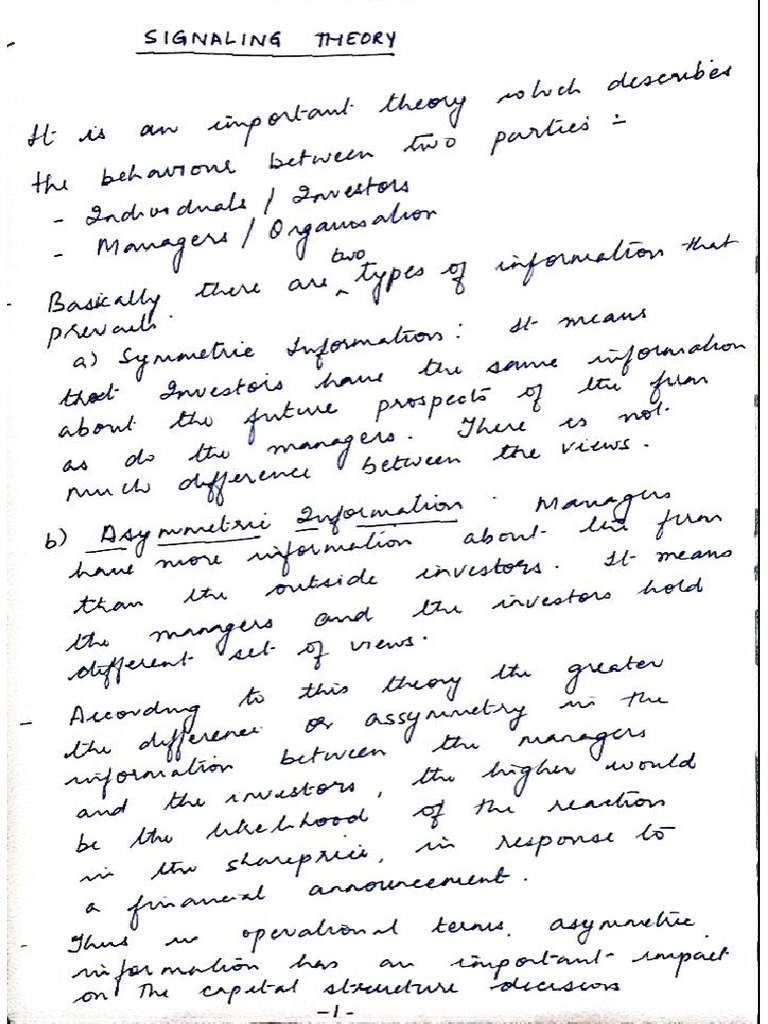 SIGNALING THEORY
It is an important theory which describes
the behaviour between two parties :-
- Individuals / Investors
- Managers / Organisation
Basically there are two types of information that
prevails.
a) Symmetric Information : It means
that Investors have the same information
about the future prospects of the firm
as do the managers. There is not
much difference between the views.
b) Asymmetric Information . Managers
have more information about the firm
than the outside investors. It means
the managers and the investors hold
different set of views.
- According to this theory the greater
the difference or assymmetry in the
information between the managers
and the investors, the higher would
be the likelihood of the reaction
in the shareprice, in response to
a financial announcement.
- Thus in operational terms, asymmetric
information has an important impact
on the capital structure decisions
-1-